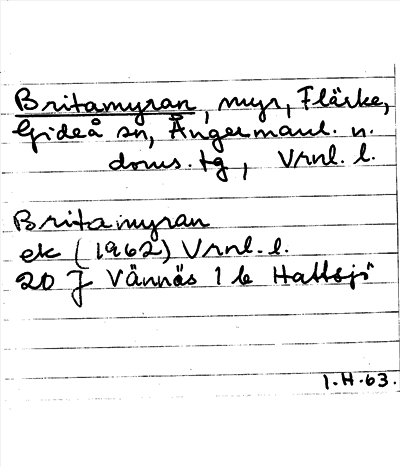 Britamyran, myr, Flärke,
Gideå sn, Ångermanl. n.
doms. tg, Vrnl. l.
Britamyran
ek (1962) Vrnl. l.
20 J Vännäs 1 b Hattsjö
1.H.63.